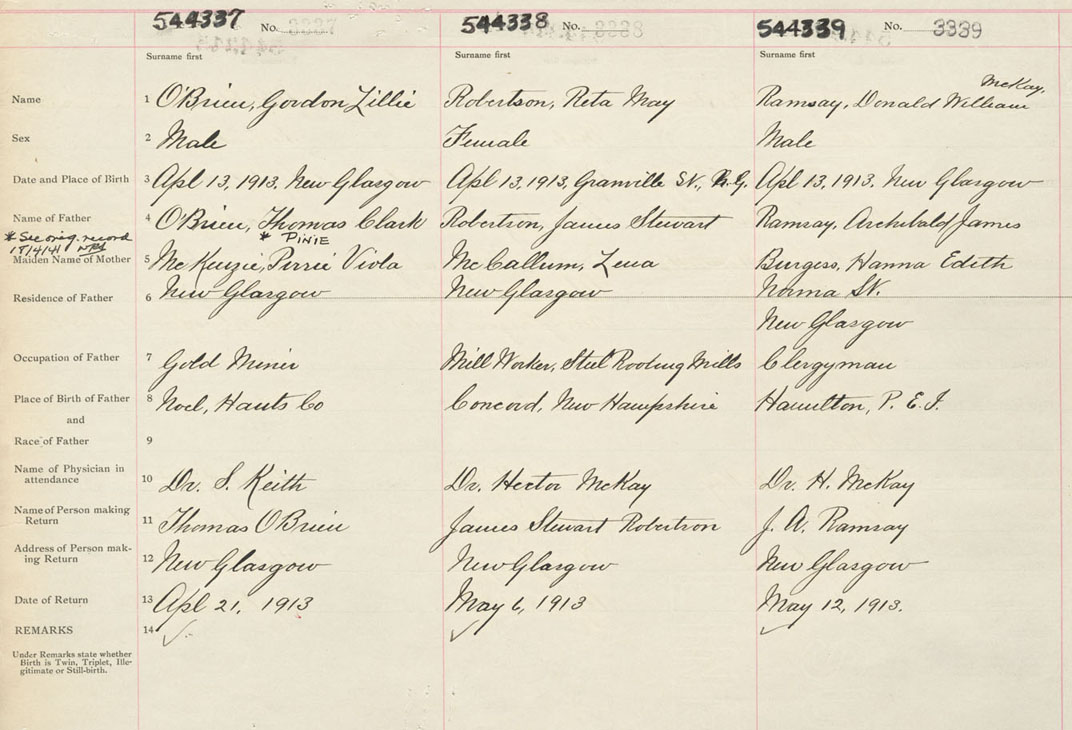 544337 No. 3337 544338 No. 3338 544339 No. 3339
Surname first Surname first Surname first
McKay,
Name 1 O'Brien, Gordon Lillie Robertson, Reta May Ramsay, Donald William
Sex 2 Male Female Male
Date and Place of Birth 3 Apl 13, 1913. New Glasgow Apl 13, 1913, Granville St., N.G. Apl 13, 1913. New Glasgow
Name of Father 4 O'Brien, Thomas Clark Robertson, James Stewart Ramsay, Archibald James
* See orig. record * PINIE
18/4/41
Maiden Name of Mother 5 McKenzie, Pirrie Viola McCallum, Lena Burgess, Hanna Edith
Residence of Father 6 New Glasgow New Glasgow Norma St.
New Glasgow
Occupation of Father 7 Gold Miner Mill Worker, Steel Rooling Mills Clergyman
Place of Birth of Father 8 Noel, Hants Co Concord, New Hampshire Hamilton, P. E. I.
and
Race of Father 9
Name of Physician in
attendance 10 Dr. S. Keith Dr. Hector McKay Dr. H. McKay
Name of Person making
Return 11 Thomas O'Brien James Stewart Robertson J. A. Ramsay
Address of Person mak-
ing Return 12 New Glasgow New Glasgow New Glasgow
Date of Return 13 Apl 21, 1913 May 6, 1913 May 12, 1913.
REMARKS 14
Under Remarks state whether
Birth is Twin, Triplet, Ille-
gitimate or Still-birth.